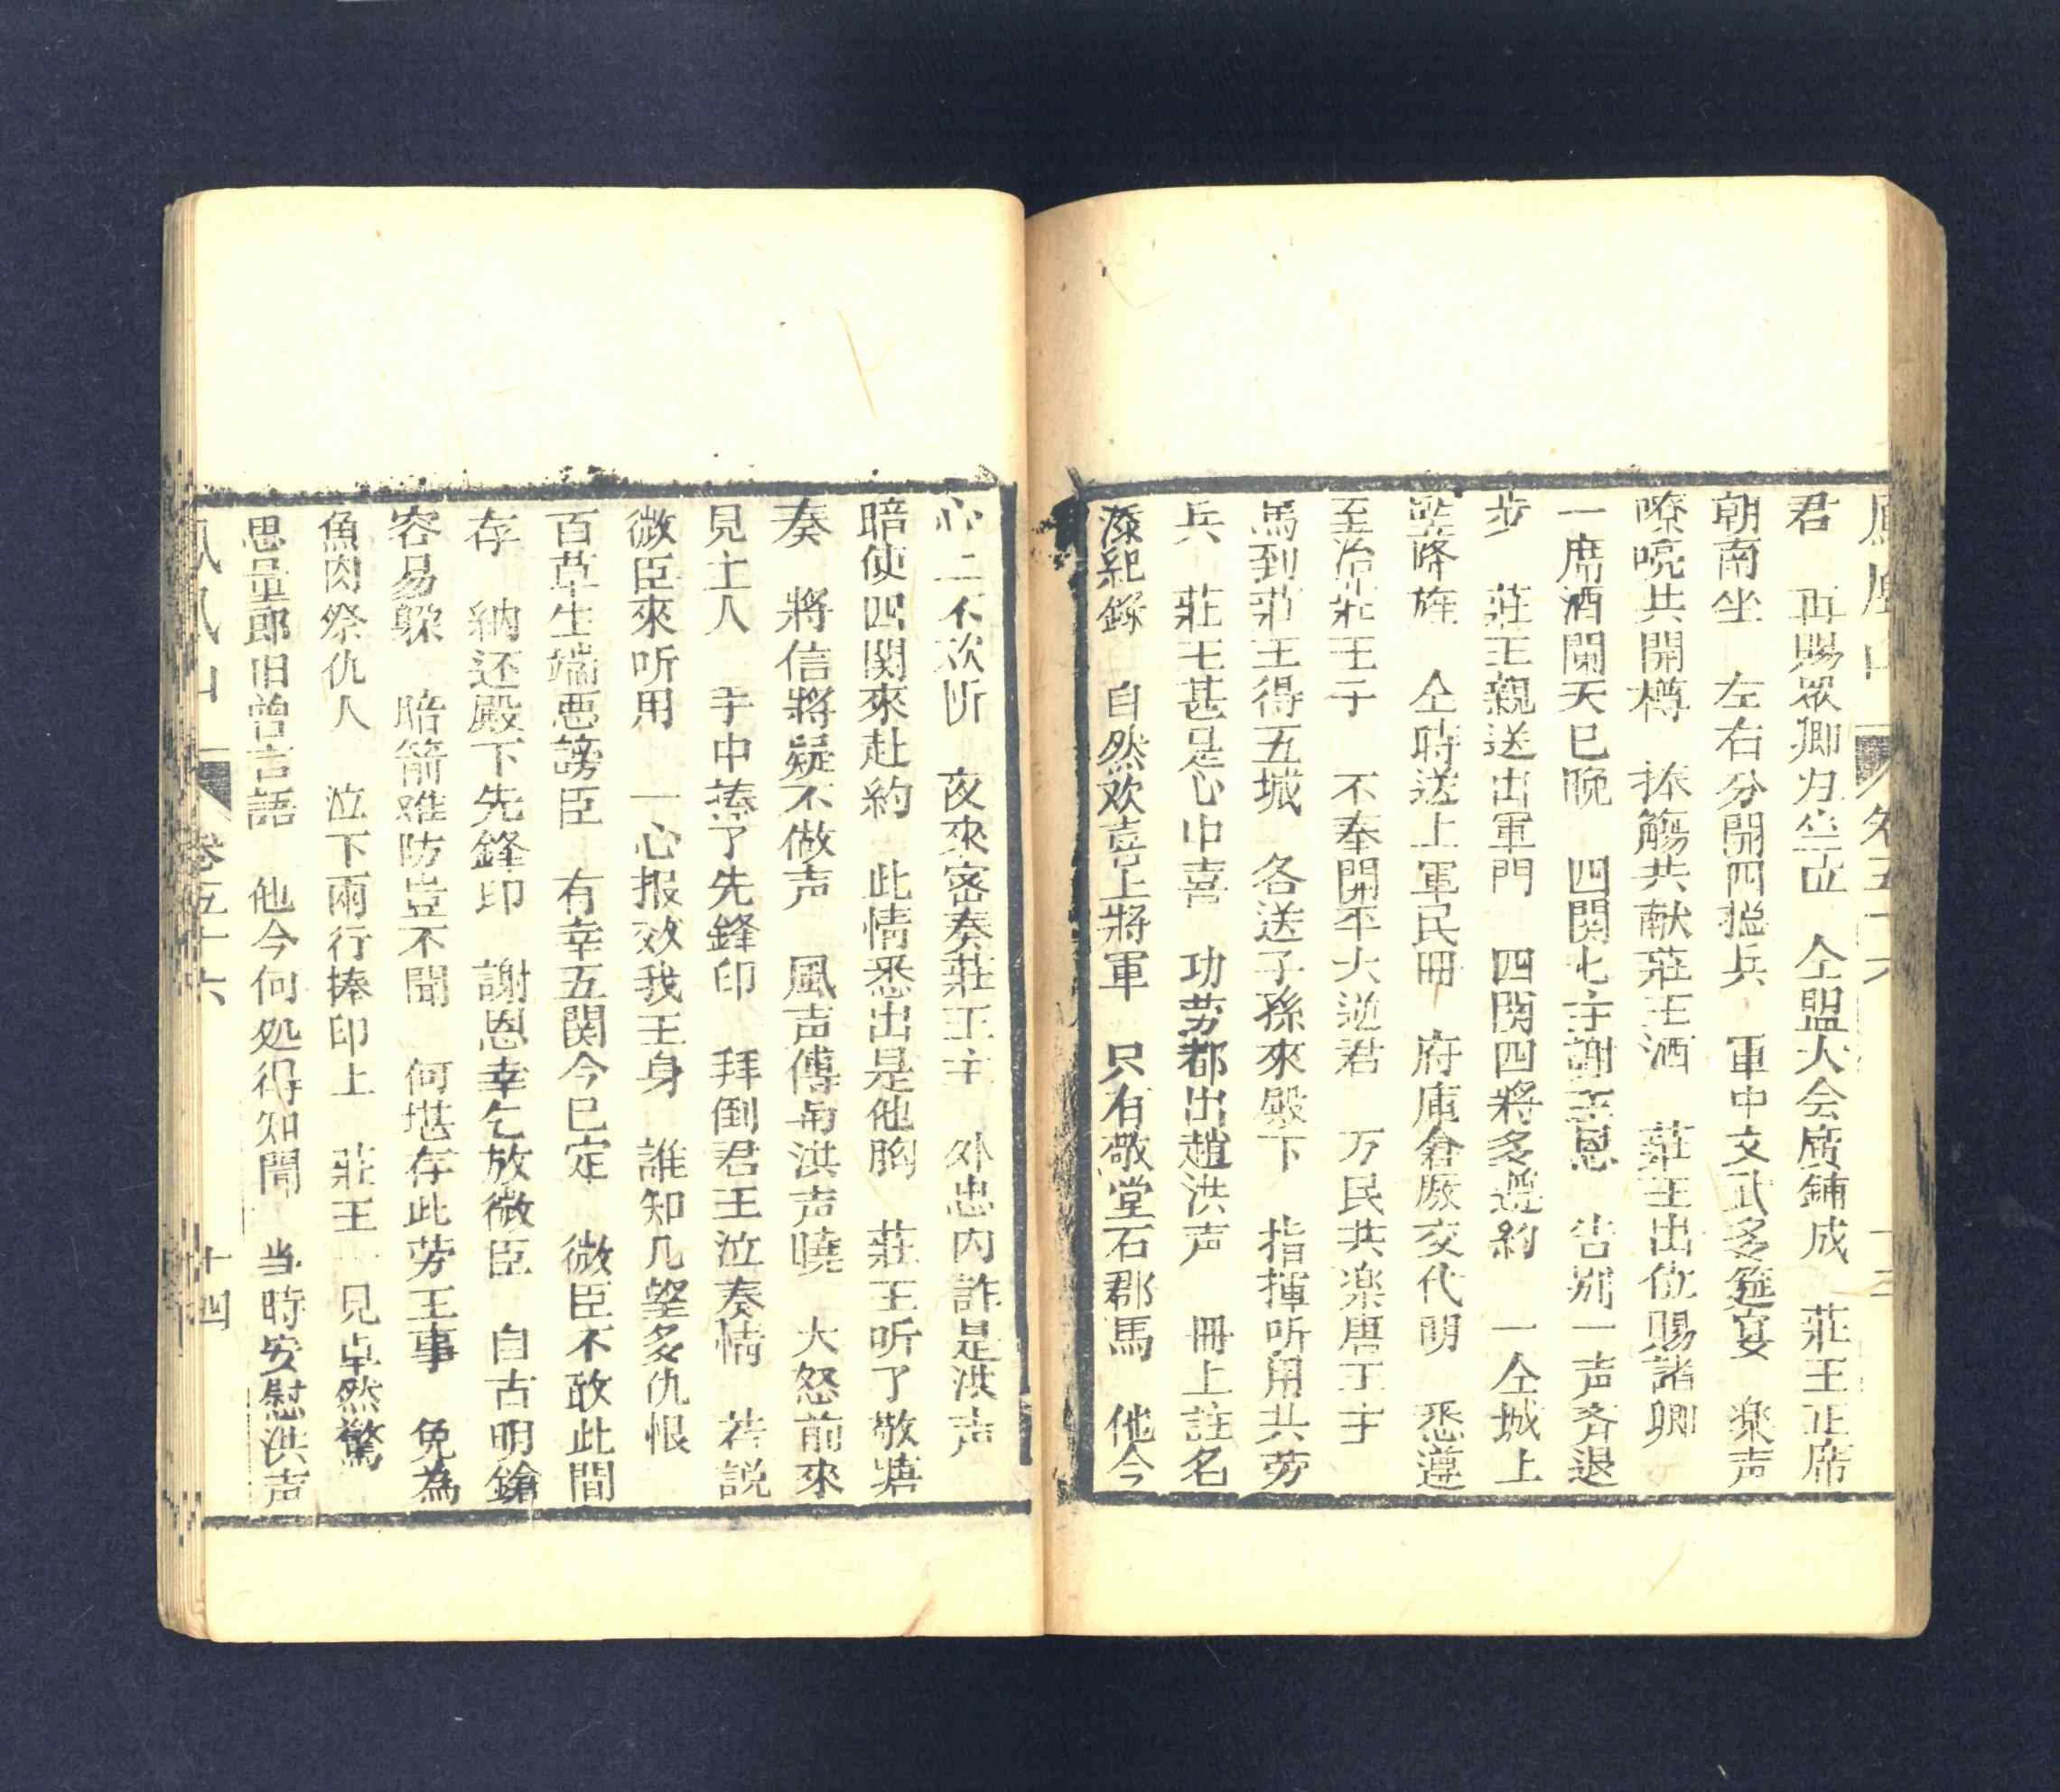 鳳凰山 卷五十六 十三
君 再賜眾卿力坐位 仝盟大会廣鋪成 莊王正席
朝南坐 左右分開四摠兵 軍中文武多筵宴 楽声
嘹喨共開樽 捧觴共献莊王酒 莊王出位賜諸卿
一席酒闌天已晚 四関七主謝王恩 告别一声齐退
步 莊王親送出軍門 四関四將多遵約 一仝城上
竪降旌 仝時送上軍民冊 府庫倉厫交代明 悉遵
至治莊王子 不奉開平大逆君 万民共楽唐王子
馬到莊王得五城 各送子孫來殿下 指揮听用共劳
兵 莊王甚是心中喜 功劳都出趙洪声 冊上註名
添紀錄 自然欢喜上將軍 只有敬堂石郡馬 他今
心二不欢听 夜來密奏莊王主 外忠内詐是洪声
暗使四関來赴約 此情悉出是他胸 莊王听了敬塘
奏 將信將疑不做声 風声傳與洪声曉 大怒前來
見主人 手中捧了先鋒印 拜倒君王泣奏情 若説
微臣來听用 一心报效我王身 誰知几望多仇恨
百草生端悪謗臣 有幸五関今已定 微臣不敢此間
存 納还殿下先鋒印 謝恩幸乞放微臣 自古明鎗
容易躲 暗箭难防豈不聞 何堪存此劳王事 免為
魚肉祭仇人 泣下兩行捧印上 莊王一見卓然驚
思量郎旧曾言語 他今何処得知聞 当時安慰洪声
鳳凰山 卷五十六 十四